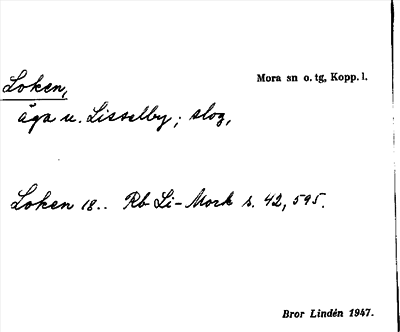 Loken,
Mora sn o. tg, Kopp. l.
äga u. Lisselby; slog,
Loken 18.. Rb Li-Mork s. 42, 595.
Bror Lindén 1947.